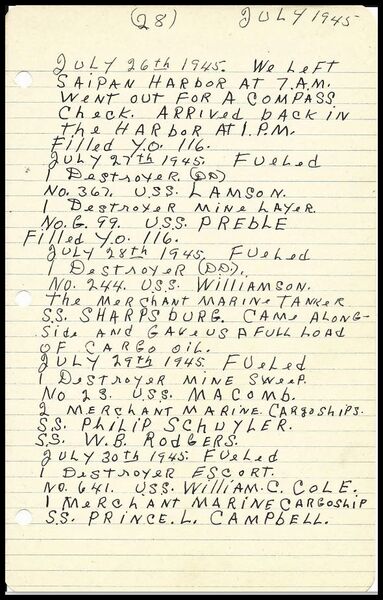 (28) JULY 1945
JULY 26th 1945. We Left
SAIPAN HARBOR AT 7.A.M.
WENT OUT FOR A COMPASS
CHECK. ARRIVED BACK IN
the HARBOR AT 1.P.M.
Filled Y.O. 116.
JULY 27th 1945. FUeLed
1 DestroyeR (DD)
No. 367. U.S.S. LAMSON.
1 DestroyeR MINE LAYeR.
No. G. 99. U.S.S. PREBLE
Filled Y.O. 116.
JULY 28th 1945. FUeLed
1 DestroyeR (DD.).
No. 244. U.S.S. WILLIAMSON.
the MeRCHANT MARINE TANKeR
S.S. SHARPSBURG. CAME ALONG-
SIDe AND GAVE US A FULL LOAD
OF CARGO OIL.
JULY 29th 1945 FUeLed
1 DestroyeR MINE SWeeP.
No 23. U.S.S. MACOMB.
2 MERCHANT MARINE CARGOSHIPS.
S.S. PHILIP SCHUYLER.
S.S. W.B. RODGERS.
JULY 30th 1945. FUeLed
1 DestroyeR ESCORT.
No. 641. U.S.S. WILLIAM.C. COLE.
1 MeRCHANT MARINE CARGOSHIP
S.S. PRINCE.L. CAMPBELL.